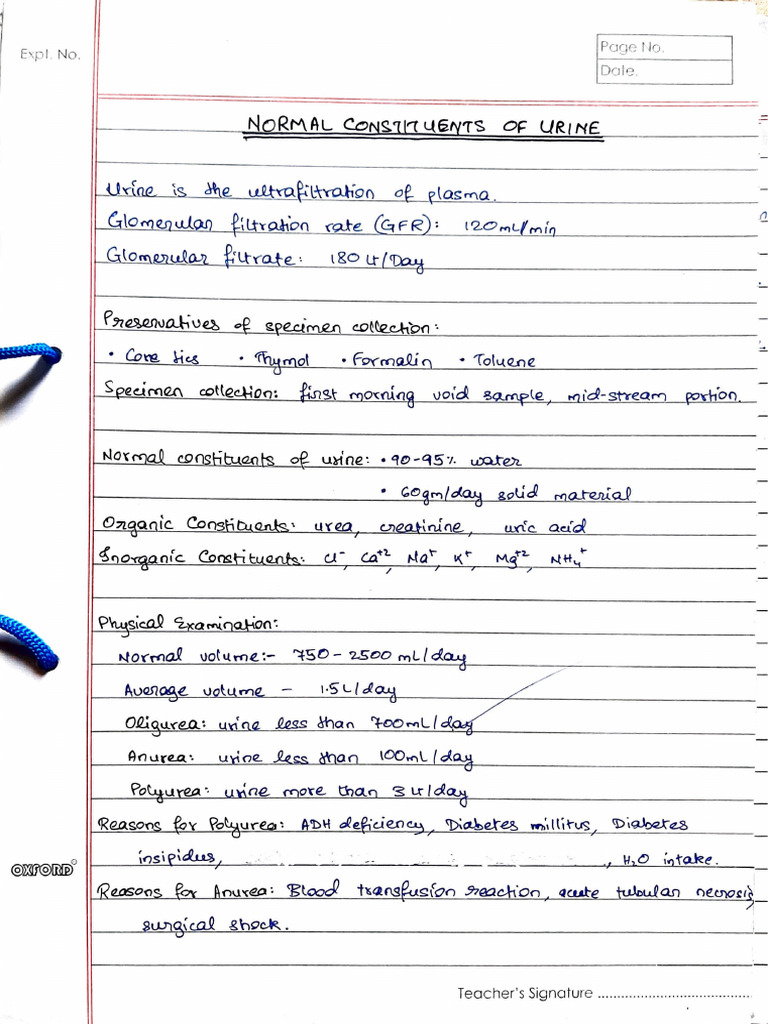 Expt. No.
Page No.
Date.
NORMAL CONSTITUENTS OF URINE
Urine is the ultrafiltration of plasma.
Glomerular filtration rate (GFR): 120mL/min
Glomerular filtrate: 180 Lt/Day
Preservatives of specimen collection:
• Core tics • Thymol • Formalin • Toluene
Specimen collection: first morning void sample, mid-stream portion.
Normal constituents of urine: • 90-95% water
• 60gm/day solid material
Organic Constituents: urea, creatinine, uric acid
Inorganic Constituents: Cl⁻, Ca⁺², Na⁺, K⁺, Mg⁺², NH₄⁺
Physical Examination:
Normal volume:- 750-2500 mL/day
Average volume - 1.5L/day
Oligurea: urine less than 700mL/day
Anurea: urine less than 100mL/day
Polyurea: urine more than 3 Lt/day
Reasons for Polyurea: ADH deficiency, Diabetes millitus, Diabetes
insipidus, , H₂O intake.
OXFORD
Reasons for Anurea: Blood transfusion reaction, acute tubular necrosis,
surgical shock.
Teacher's Signature ........................................